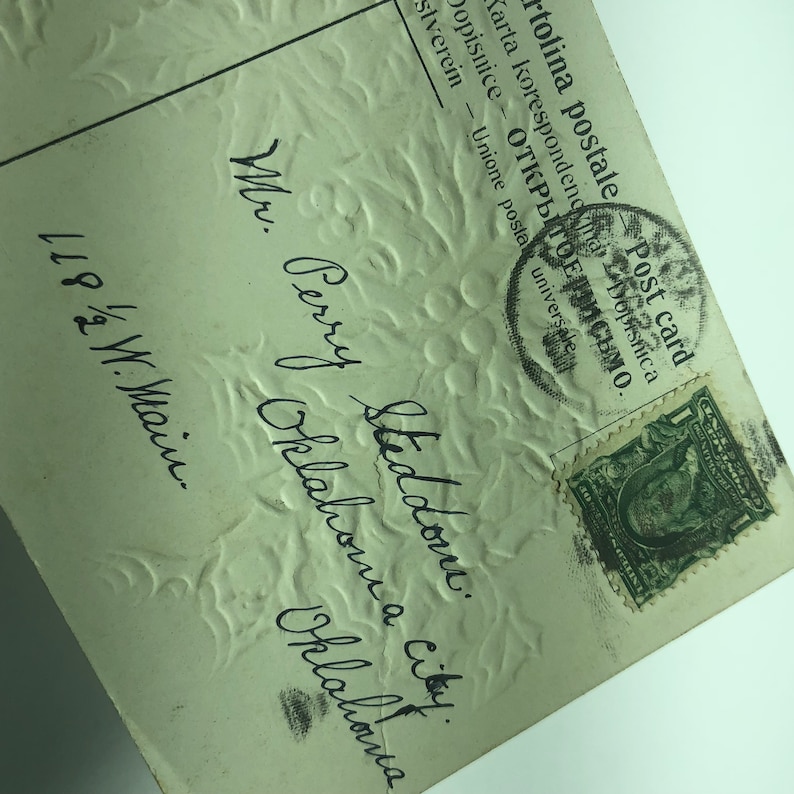 rtolina postale – Post card
Karta korespondencyjna – Dopisnica
Dopisnice – ОТКРЫТОЕ ПИСЬМО.
stverein – Unione postale universale
Mr. Perry Steddom.
Oklahoma city.
Oklahoma
118 1/2 W. Main.
1 1